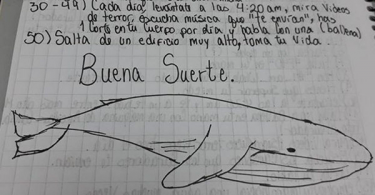 30-49) Cada día, levántate a las 4:20 am, mira videos
de terror, escucha música que "te envían", has
1 corte en tu cuerpo por día y habla con una (ballena)
50) Salta de un edificio muy alto, toma tu vida.
Buena Suerte.